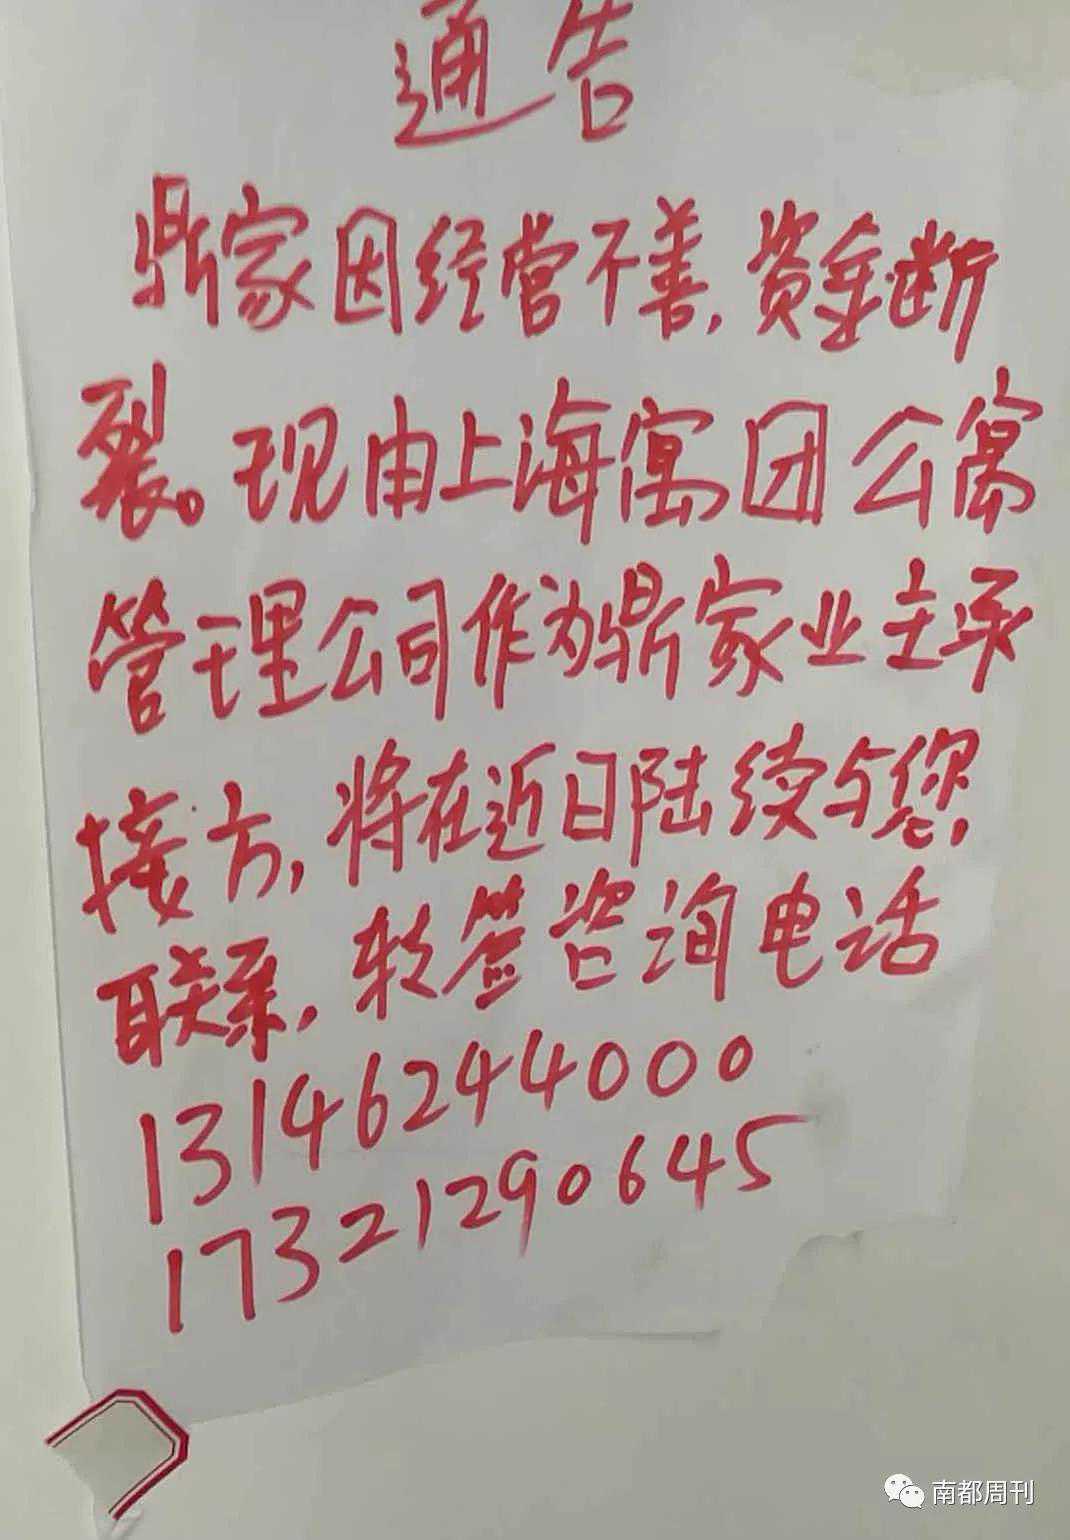 通告
鼎家因经营不善，资金断
裂。现由上海寓团公寓
管理公司作为鼎家业主承
接方，将在近日陆续与您，
联系，转签咨询电话
13146244000
17321290645
南都周刊